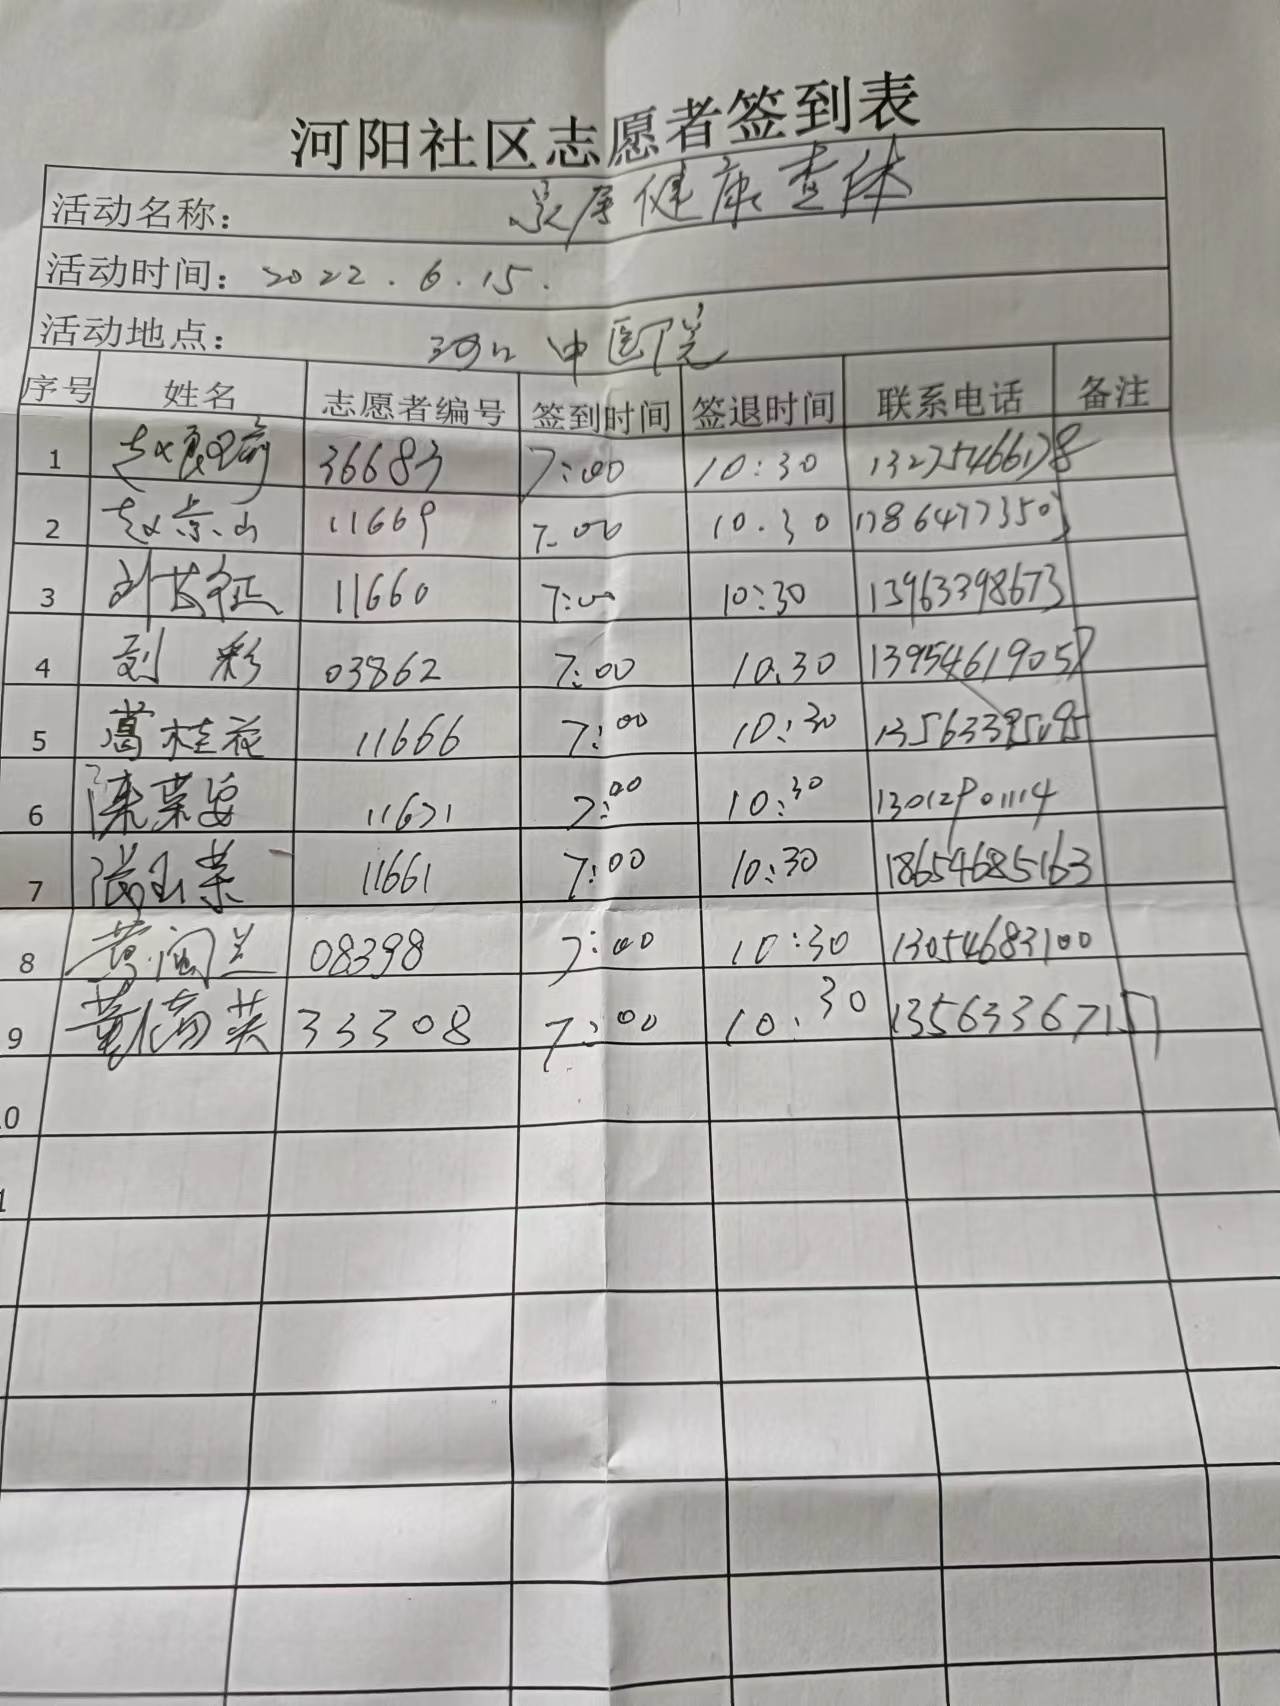 河阳社区志愿者签到表
活动名称: 居民健康查体
活动时间: 2022.6.15.
活动地点: 河口中医院
序号 姓名 志愿者编号 签到时间 签退时间 联系电话 备注
1 36683 7:00 10:30 13275466178
2 赵景山 11669 7:00 10.30 17864773503
3 刘芸征 11660 7:00 10:30 13963398673
4 刘彩 03862 7:00 10.30 13954619057
5 葛桂花 11666 7:00 10:30 13563395195
6 陈荣安 11671 7:00 10:30 13012901114
7 张玉荣 11661 7:00 10:30 18654685163
8 黄阁兰 08398 7:00 10:30 13054683100
9 董倩英 33308 7:00 10.30 13563367151